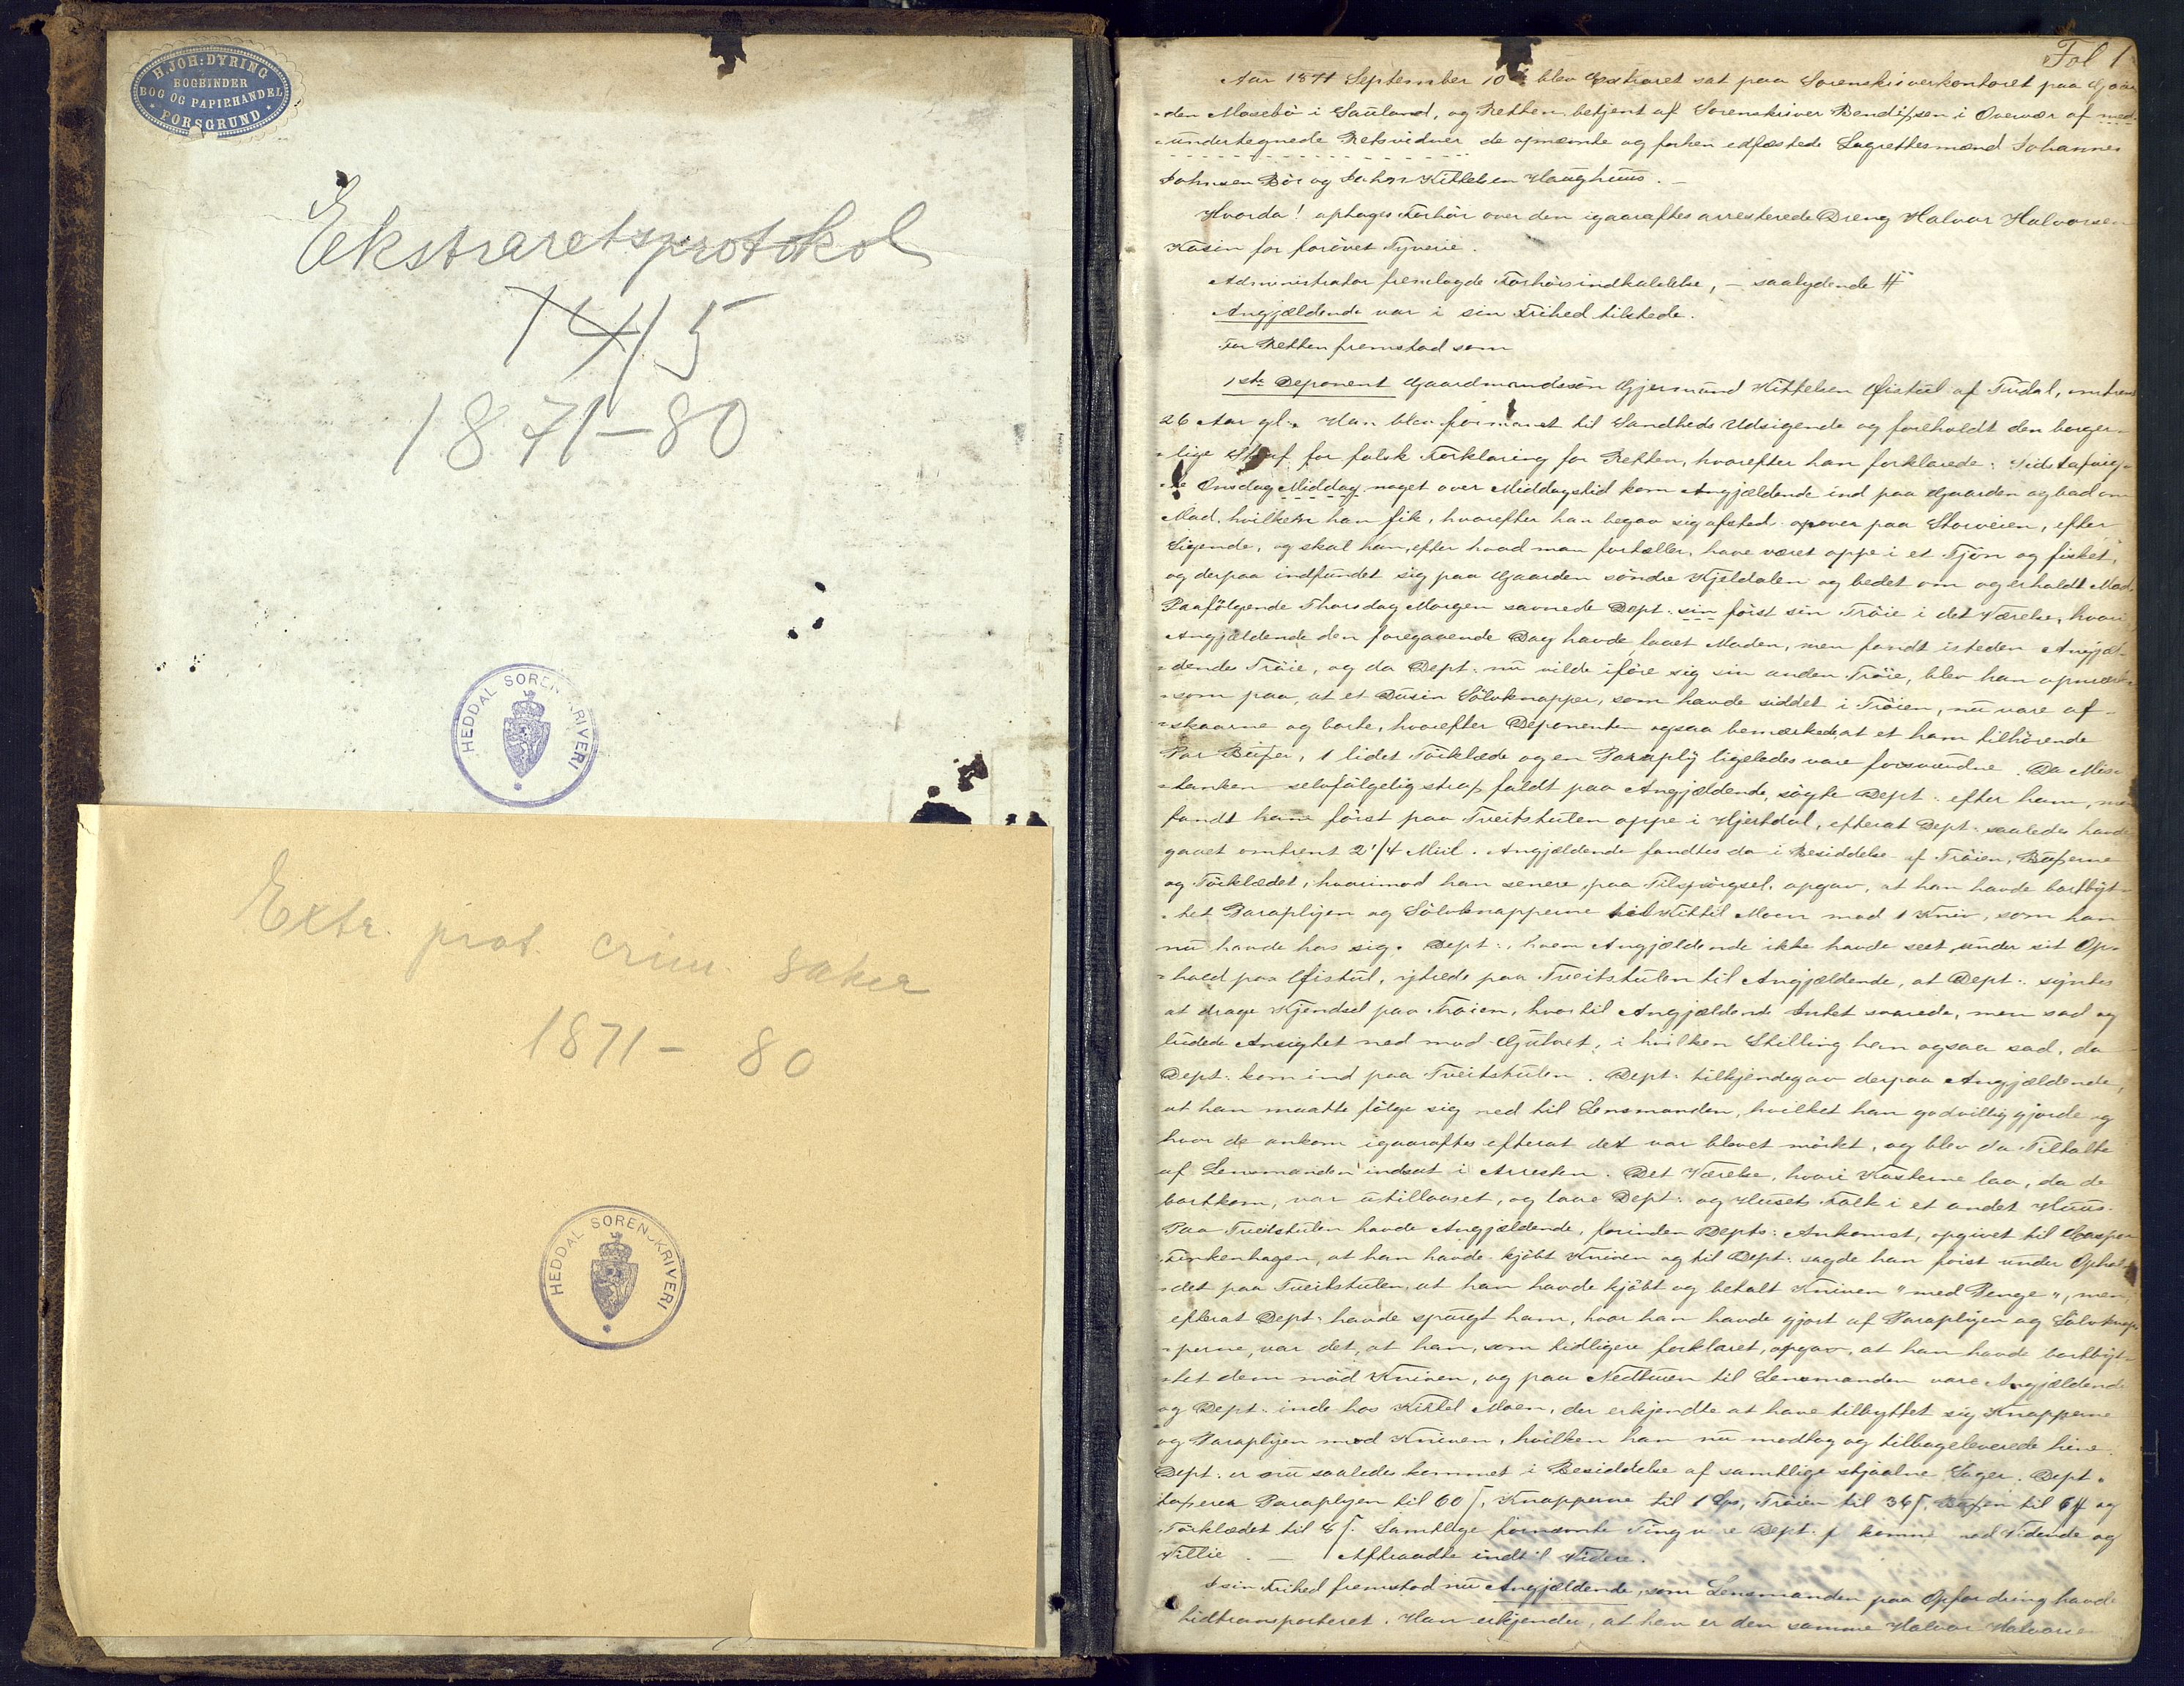 H. JOH: DYRING
BOGBINDER
BOG OG PAPIRHANDEL
PORSGRUND
Ekstraretsprotokol
14/5
1871-80
HEDDAL SORENSKRIVERI
Extr. prot. crim. saker
1871-80
HEDDAL SORENSKRIVERI
Fol 1
Aar 1871 September 10de blev Extraret sat paa Sorenskriverkontoret paa Gaar-
-den Mosebø i Sauland, og Retten betjent af Sorenskriver Bendixsen i Overvær af med-
-undertegnede Retsvidner de opnævnte og forhen edfæstede Lagrettesmænd Johannes
Johnsen Bøe og John Kittelsen Haughuus. —
Hvorda! optoges Forhør over den igaaraftes arresterede Dreng Halvor Halvorsen
Kåsin for forøvet Tyverie.
Administrator fremlagde Forhørsindkaldelse, – saalydende #
Angjældende var i sin Frihed tilstede.
For Retten fremstod som
1ste Deponent Gaardmandssøn Gjermund Kittelsen Øistul af Tudal, omtrent
26 Aar gl. Han blev formanet til Sandheds Udsigende og foreholdt den borger-
-lige Straf for falsk Forklaring for Retten, hvorefter han forklarede: Sidstafvig-
-te Onsdag Middag noget over Middagstid kom Angjældende ind paa Gaarden og bad om
Mad, hvilken han fik, hvorefter han begav sig afsted opover paa Storveien, efter
Sigende, og skal han, efter hvad man fortæller, have været oppe i et Tjøn og fisket,
og derpaa indfundet sig paa Gaarden søndre Kjeldalen og bedet om og erholdt Mad.
Paafølgende Thorsdag Morgen savnede Dept: sin først sin Trøie i det Værelse, hvori
Angjældende den foregaaende Dag havde faaet Maden, men fandt isteden Angjæl-
-dendes Trøie, og da Dept: nu vilde iføre sig sin anden Trøie, blev han opmærk-
-som paa, at et Dusin Sølvknapper, som havde siddet i Trøien, nu vare af-
-skaarne og borte, hvorefter Deponenten ogsaa bemærkede, at et ham tilhørende
Par Buxer, 1 lidet Tørklæde og en Paraply ligeledes vare forsvundne. Da Mis-
-tanken selvfølgelig strax faldt paa Angjældende, søgte Dept: efter ham, men
fandt ham først paa Tveitstulen oppe i Hjertdal, efterat Dept: saaledes havde
gaaet omtrent 2 1/4 Miil. Angjældende fandtes da i Besiddelse af Trøien, Buxerne
og Tørklædet, hvorimod han senere, paa Tilspørgsel, opgav, at han havde bortbyt-
-tet Paraplyen og Sølvknapperne til Kittil Moen mod 1 Kniv, som han
nu havde hos sig. Dept:, hvem Angjældende ikke havde seet under sit Op-
-hold paa Øistul, yttrede paa Tveitstulen til Angjældende, at Dept: syntes
at drage Kjendsel paa Trøien, hvortil Angjældende Intet svarede, men sad og
ludede Ansigtet ned mod Gulvet, i hvilken Stilling han ogsaa sad, da
Dept: kom ind paa Tveitstulen. Dept: tilkjendegav derpaa Angjældende,
at han maatte følge sig ned til Lensmanden, hvilket han godvillig gjorde og
hvor de ankom igaaraftes efterat det var blevet mørkt, og blev da Tiltalte
af Lensmanden indsat i Arresten. Det Værelse, hvori Kosterne laa, da de
bortkom, var utillaaset, og laae Dept: og Husets Folk i et andet Huus.
Paa Tveitstulen havde Angjældende, forinden Depts: Ankomst, opgivet til Casper
Finkenhagen, at han havde kjøbt Kniven og til Dept: sagde han først under Ophol-
-det paa Tveitstulen, at han havde kjøbt og betalt Kniven "med Penge", men,
efterat Dept: havde spurgt ham, hvor han havde gjort af Paraplyen og Sølvknap-
-perne, var det, at han, som tidligere forklaret, opgav, at han havde bortbyt-
-tet dem mod Kniven, og paa Nedturen til Lensmanden vare Angjældende
og Dept: inde hos Kittel Moen, der erkjendte at have tilbyttet sig Knapperne
og Paraplyen mod Kniven, hvilken han nu modtog og tilbageleverede hine.
Dept: er nu saaledes kommet i Besiddelse af samtlige stjaalne Sager. Dept:
taxerer Paraplyen til 60 ſ, Knapperne til 1 Spd, Trøien til 36 ſ, Buxen til 6 # og
Tørklædet til 8 ſ. Samtlige fornævnte Ting ere Dept: frakomne mod Vidende og
Villie. — Aftraadte indtil Videre.
I sin Frihed fremstod nu Angjældende, som Lensmanden paa Opfordring havde
hidtransporteret. Han erkjender, at han er den samme Halvor Halvorsen